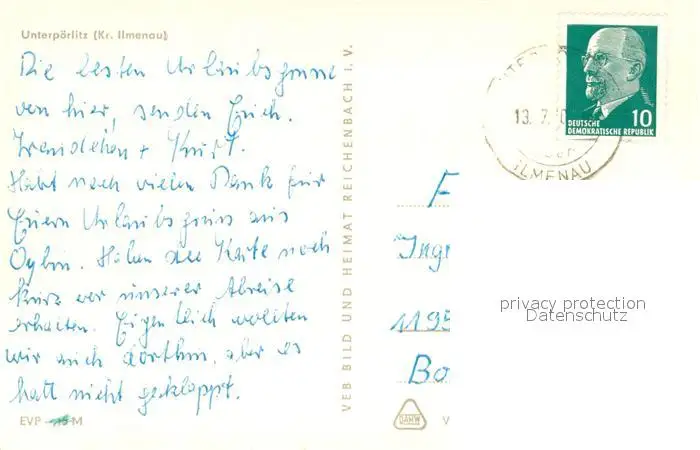 Unterpörlitz (Kr. Ilmenau)
Die besten Urlaubsgrüsse
von hier, senden Euch.
+ Kurt.
Habt noch vielen Dank für
Euern Urlaubsgruss aus
Oybin. Haben die Karte noch
kurz vor unserer Abreise
erhalten. Eigentlich wollten
wir auch dorthin, aber es
hatt nicht geklappt.
EVP M
VEB BILD UND HEIMAT REICHENBACH I. V.
13. 7.
ILMENAU
10
DEUTSCHE
DEMOKRATISCHE REPUBLIK
F
Ingr
1195
Bo
privacy protection
Datenschutz
V